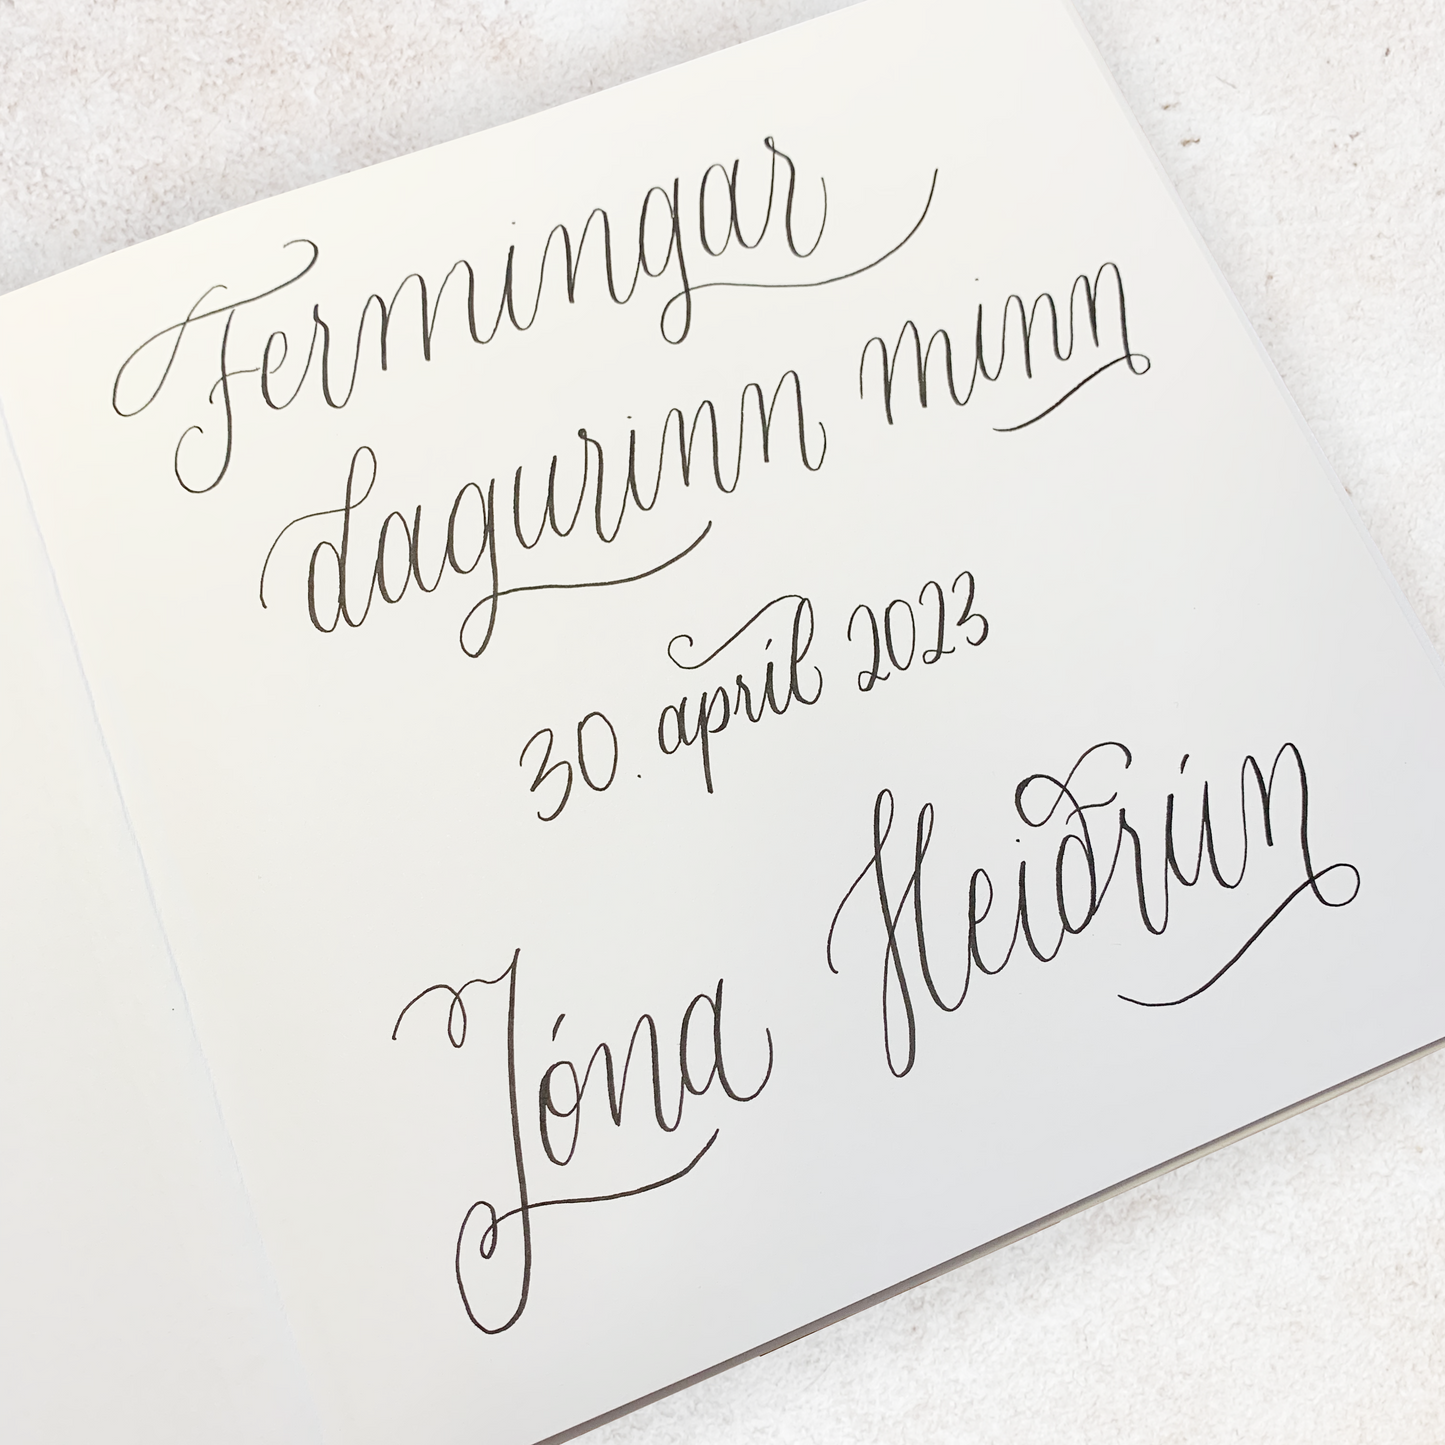 Fermingar
dagurinn minn
30. apríl 2023
Jóna Heiðrún